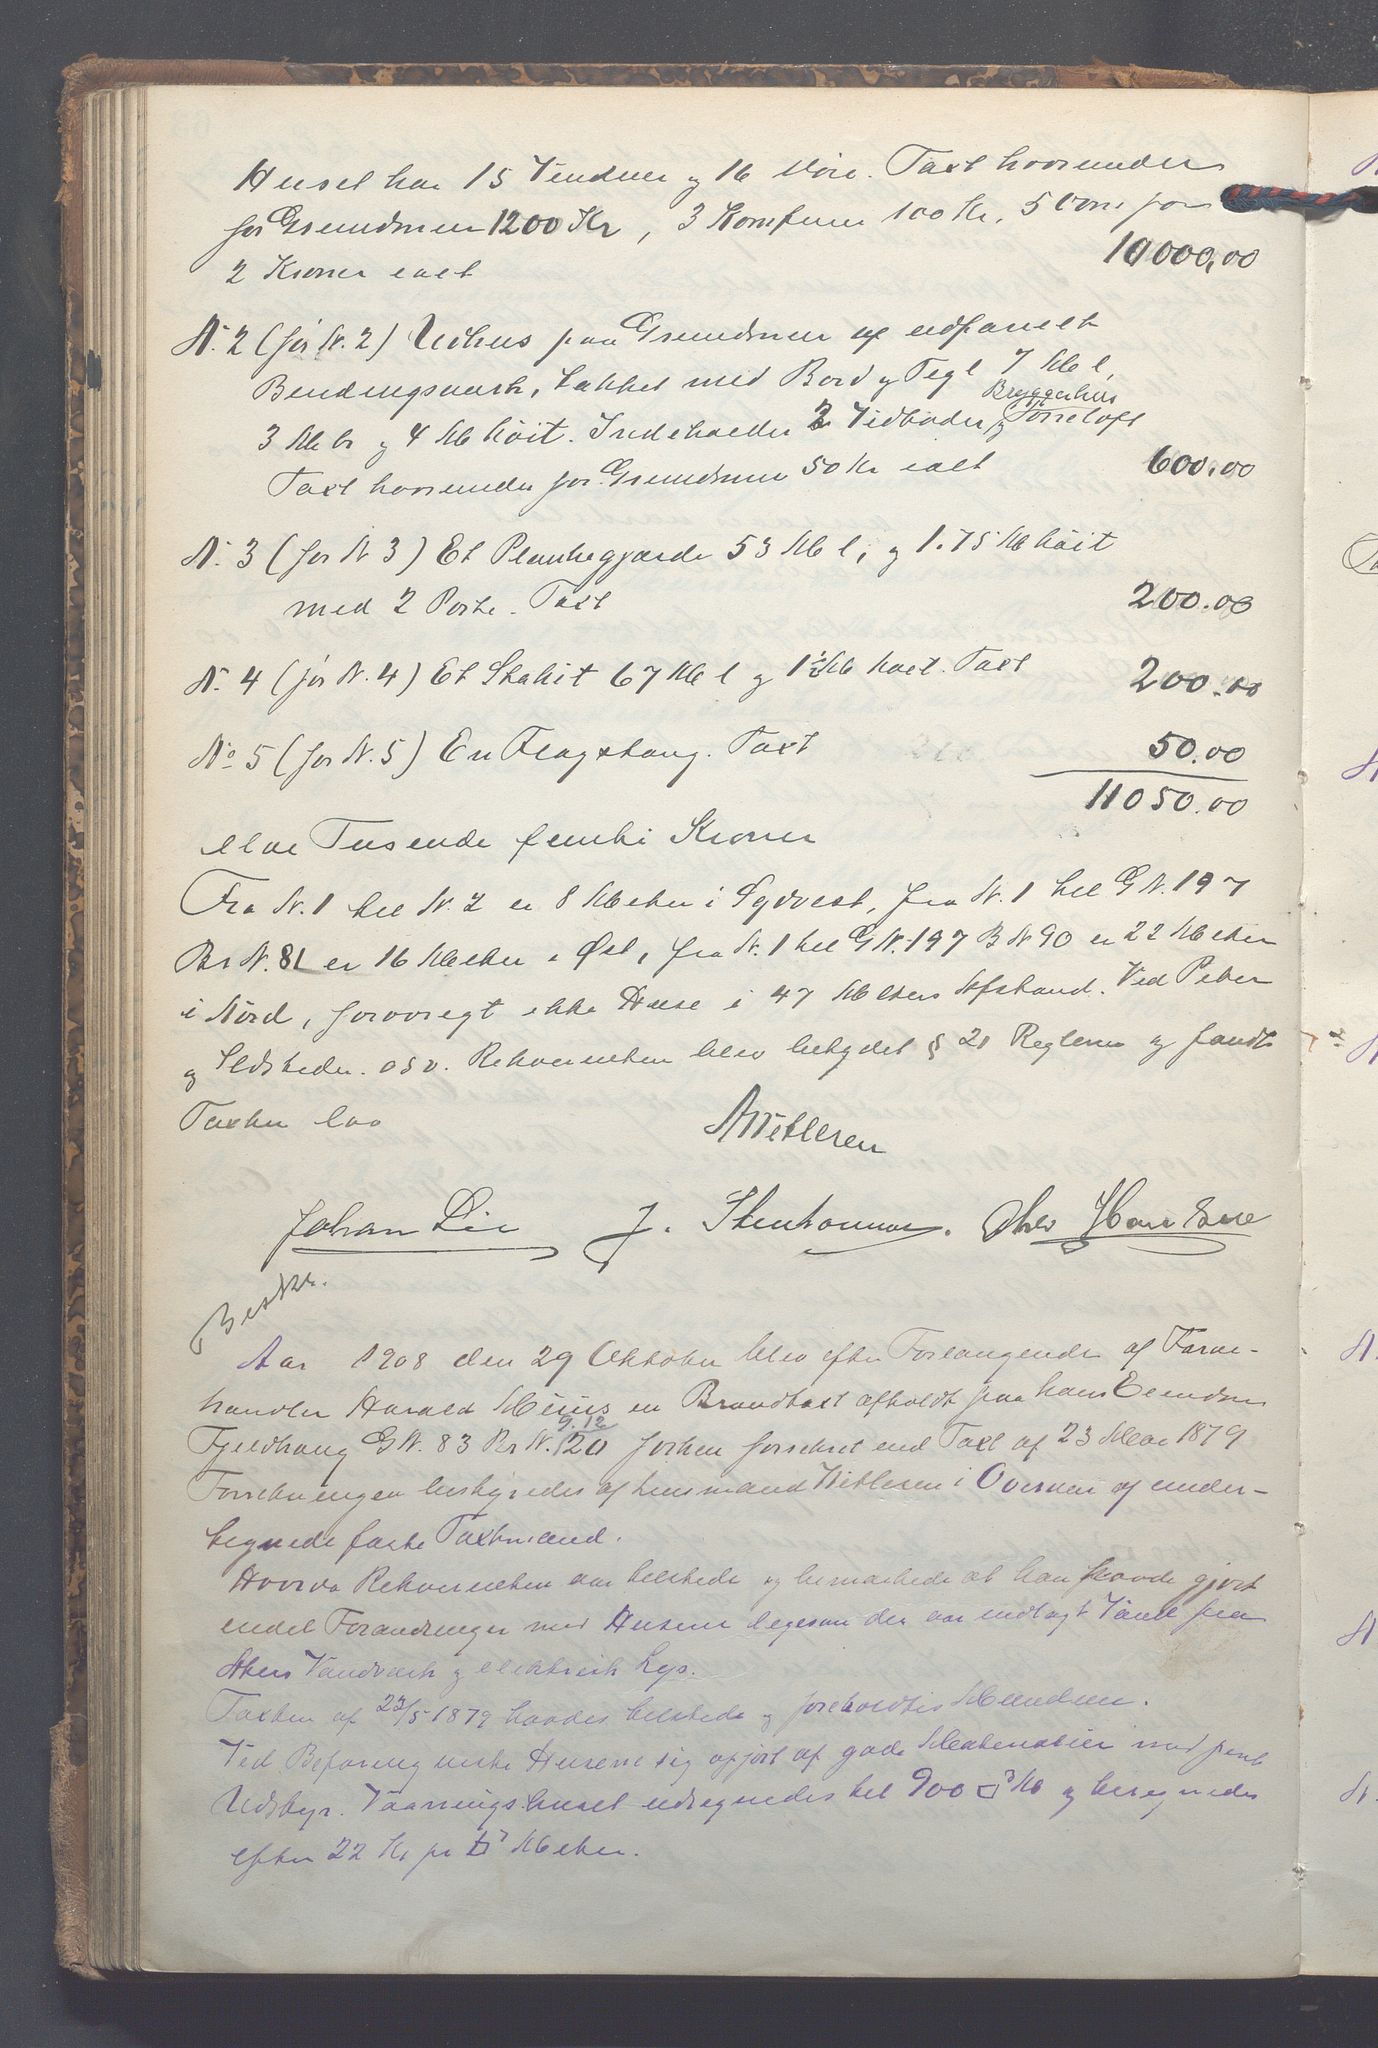 Huset har 15 Vinduer og 16 Döre. Taxt hvorunder
for Grundmur 1200 Kr, 3 Komfurer 100 Kr, 5 Ovne for
2 Kroner ialt 10000,00
N. 2 (før N. 2) Udhus paa Grundmur af udpanelt
Bindingsværk, takket med Bord og Tegl 7 M l,
3 M br og 4 M høit. Indeholder 2 Vedboder, Bryggerhus og Tørreloft
Taxt hvorunder for Grundmur 50 Kr ialt 600,00
N. 3 (før N 3) Et Plankegjærde 53 M l, og 1.75 M høit
med 2 Porte. Taxt 200.00
N. 4 (før N. 4) Et Stakit 67 M l og 1½ M høit. Taxt 200.00
No 5 (før N. 5) En Flagstang. Taxt 50.00
11050.00
elve Tusende femti Kroner
Fra N. 1 til N. 2 er 8 Meter i Sydvest, fra N. 1 til G N. 197
Br N. 81 er 16 Meter i Øst, fra N. 1 til G N. 197 B N 90 er 22 Meter
i Nord, forøvrigt ikke Huse i 47 Meters Afstand. Ved Piber
og Ildsteder. osv. Rekvirenten blev betydet § 21 Reglerne og fandt
Taxten lav
AWetlesen
Johan Lie J. Stenhammer. Ole Hansen
Beskr.
Aar 1908 den 29 Oktober blev efter Forlangende af Farve-
handler Harald en Brandtaxt afholdt paa hans Eiendom
Fjeldhaug G N. 83 Br N. 120 9.12 forhen forsikret ved Taxt af 23 Mai 1879
Forretningen bestyredes af Lensmand Wetlesen i Overvær af under-
tegnede faste Taxtmænd.
Hvorda Rekvirenten var tilstede og bemærkede at han havde gjort
endel Forandringer med Husene ligesom der var indlagt Vand fra
Akers Vandværk og elektrisk Lys.
Taxten af 23/5 1879 havdes tilstede og foreholdtes Mændene.
Ved Befaring viste Husene sig opført af gode Materialier med pent
Udstyr. Vaaningshuset udregnedes til 900 □3 M og beregnedes
efter 22 Kr pr □3 Meter.